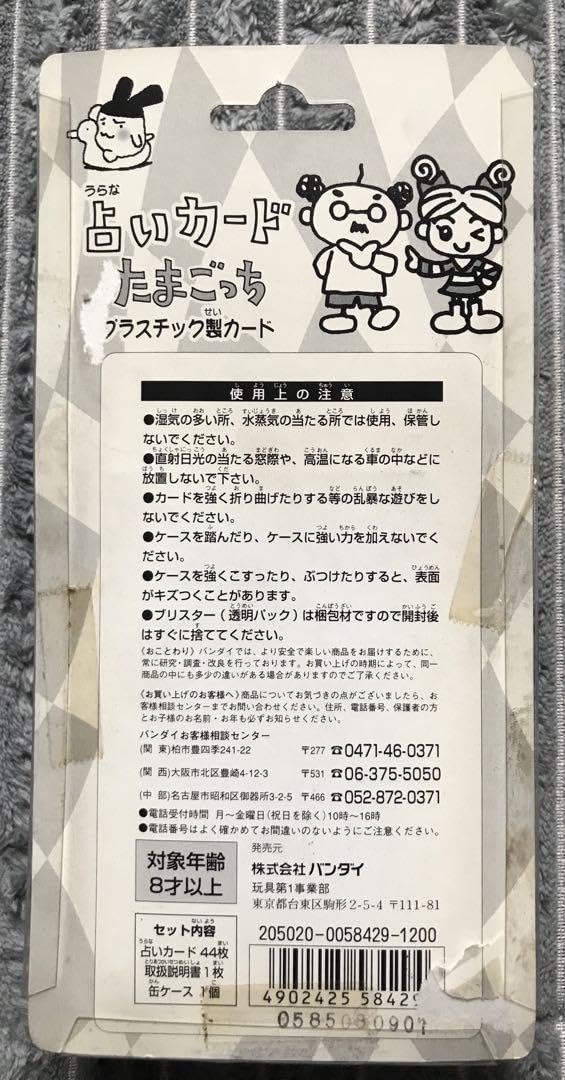 うらな
占いカード
たまごっち
せい
プラスチック製カード
しようじょう ちゅうい
使用上の注意
しっけ おお ところ すいじょうき あ ところ しよう ほかん
●湿気の多い所、水蒸気の当たる所では使用、保管し
ないでください。
ちょくしゃにっこう あ まどぎわ こうおん くるま なか
●直射日光の当たる窓際や、高温になる車の中などに
ほうち くだ
放置しないで下さい。
つよ お ま など らんぼう あそ
●カードを強く折り曲げたりする等の乱暴な遊びをし
ないでください。
ふ つよ ちから くわ
●ケースを踏んだり、ケースに強い力を加えないでく
ださい。
つよ ひょうめん
●ケースを強くこすったり、ぶつけたりすると、表面
がキズつくことがあります。
とうめい こんぽうざい かいふうご
●ブリスター(透明パック)は梱包材ですので開封後
す
はすぐに捨ててください。
《おことわり》バンダイでは、より安全で楽しい商品をお届けするために、
常に研究・調査・改良を行っております。お買い上げの時期によって、同一
商品の中にも多少の違いがある場合がありますのでご了承ください。
《お買い上げのお客様へ》商品についてお気づきの点がございましたら、お
客様相談センターまでお問い合わせください。住所、電話番号、保護者の方
とお子様のお名前・お年も必ずお知らせください。
バンダイお客様相談センター
(関 東)柏市豊四季241-22 〒277 ☎0471-46-0371
(関 西)大阪市北区豊崎4-12-3 〒531 ☎06-375-5050
(中 部)名古屋市昭和区御器所3-2-5 〒466 ☎052-872-0371
●電話受付時間 月〜金曜日(祝日を除く)10時〜16時
●電話番号はよく確かめてお間違いのないようにご注意ください。
対象年齢
8才以上
発売元
株式会社 バンダイ
玩具第1事業部
東京都台東区駒形2-5-4 〒111-81
ないよう
セット内容
うらな まい
占いカード 44枚
とりあつかいせつめいしょ まい
取扱説明書 1枚
かん こ
缶ケース 1個
205020-0058429-1200
4902425 58429
0585080907